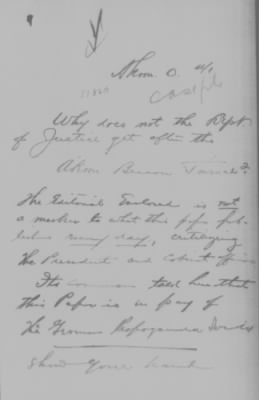 Akron O. 4/1
Why does not the Dept
of Justice get after the
Akron Beacon Journal?
The Editorial Enclosed is not
a marker to what this paper pub-
lishes every day, criticizing
the President and Cabinet officers
Its common told here that
this Paper is in pay of
the German Propaganda
Show your hand